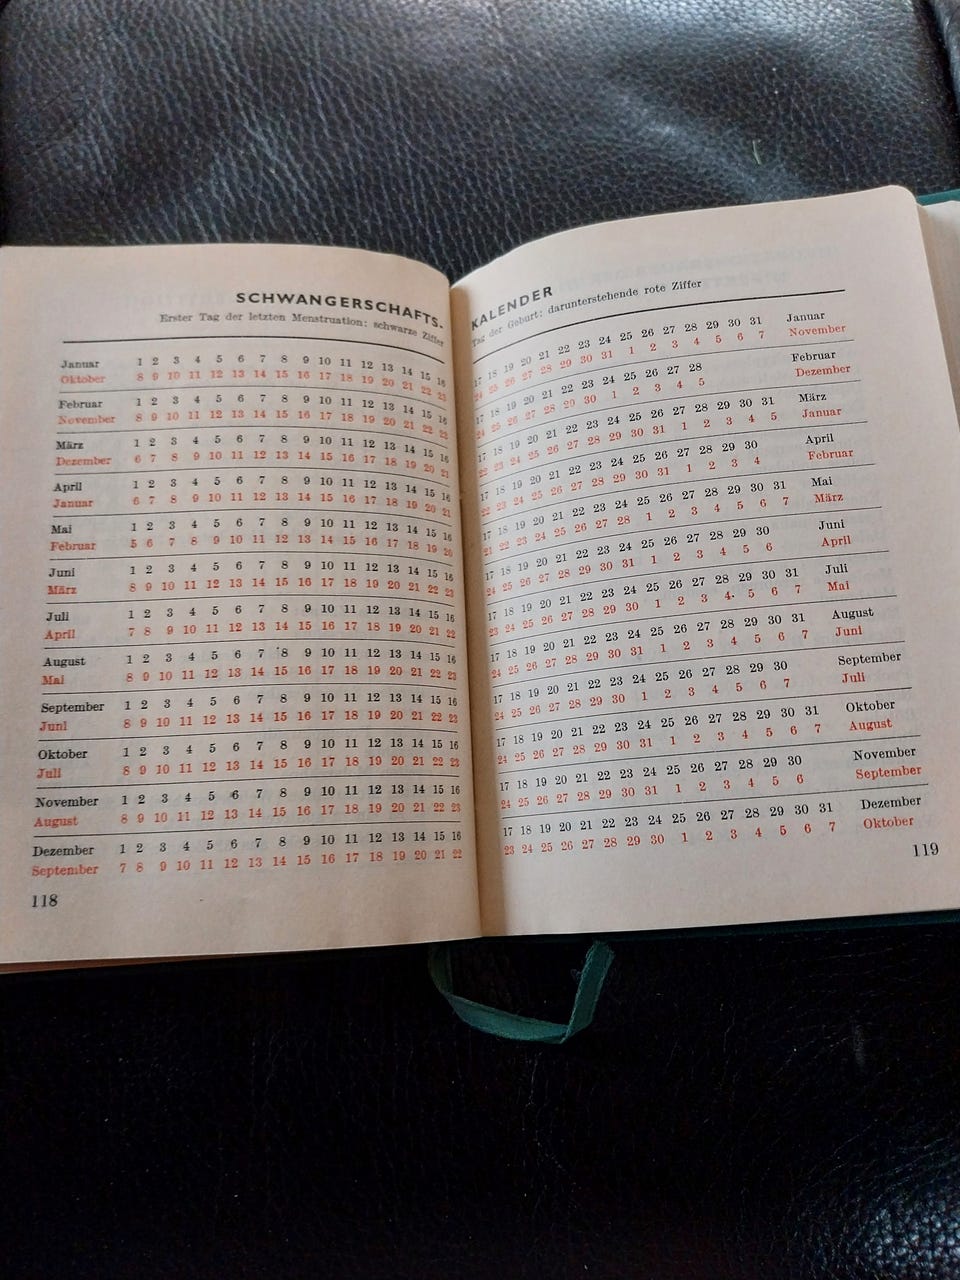 SCHWANGERSCHAFTS-
Erster Tag der letzten Menstruation: schwarze Ziffer
Januar 1 2 3 4 5 6 7 8 9 10 11 12 13 14 15 16
Oktober 8 9 10 11 12 13 14 15 16 17 18 19 20 21 22 23
Februar 1 2 3 4 5 6 7 8 9 10 11 12 13 14 15 16
November 8 9 10 11 12 13 14 15 16 17 18 19 20 21 22 23
März 1 2 3 4 5 6 7 8 9 10 11 12 13 14 15 16
Dezember 6 7 8 9 10 11 12 13 14 15 16 17 18 19 20 21
April 1 2 3 4 5 6 7 8 9 10 11 12 13 14 15 16
Januar 6 7 8 9 10 11 12 13 14 15 16 17 18 19 20 21
Mai 1 2 3 4 5 6 7 8 9 10 11 12 13 14 15 16
Februar 5 6 7 8 9 10 11 12 13 14 15 16 17 18 19 20
Juni 1 2 3 4 5 6 7 8 9 10 11 12 13 14 15 16
März 8 9 10 11 12 13 14 15 16 17 18 19 20 21 22 23
Juli 1 2 3 4 5 6 7 8 9 10 11 12 13 14 15 16
April 7 8 9 10 11 12 13 14 15 16 17 18 19 20 21 22
August 1 2 3 4 5 6 7 8 9 10 11 12 13 14 15 16
Mai 8 9 10 11 12 13 14 15 16 17 18 19 20 21 22 23
September 1 2 3 4 5 6 7 8 9 10 11 12 13 14 15 16
Juni 8 9 10 11 12 13 14 15 16 17 18 19 20 21 22 23
Oktober 1 2 3 4 5 6 7 8 9 10 11 12 13 14 15 16
Juli 8 9 10 11 12 13 14 15 16 17 18 19 20 21 22 23
November 1 2 3 4 5 6 7 8 9 10 11 12 13 14 15 16
August 8 9 10 11 12 13 14 15 16 17 18 19 20 21 22 23
Dezember 1 2 3 4 5 6 7 8 9 10 11 12 13 14 15 16
September 7 8 9 10 11 12 13 14 15 16 17 18 19 20 21 22
118
KALENDER
Tag der Geburt: darunterstehende rote Ziffer
17 18 19 20 21 22 23 24 25 26 27 28 29 30 31 Januar
24 25 26 27 28 29 30 31 1 2 3 4 5 6 7 November
17 18 19 20 21 22 23 24 25 26 27 28 Februar
24 25 26 27 28 29 30 1 2 3 4 5 Dezember
17 18 19 20 21 22 23 24 25 26 27 28 29 30 31 März
22 23 24 25 26 27 28 29 30 31 1 2 3 4 5 Januar
17 18 19 20 21 22 23 24 25 26 27 28 29 30 April
22 23 24 25 26 27 28 29 30 31 1 2 3 4 Februar
17 18 19 20 21 22 23 24 25 26 27 28 29 30 31 Mai
21 22 23 24 25 26 27 28 1 2 3 4 5 6 7 März
17 18 19 20 21 22 23 24 25 26 27 28 29 30 Juni
24 25 26 27 28 29 30 31 1 2 3 4 5 6 April
17 18 19 20 21 22 23 24 25 26 27 28 29 30 31 Juli
23 24 25 26 27 28 29 30 1 2 3 4 5 6 7 Mai
17 18 19 20 21 22 23 24 25 26 27 28 29 30 31 August
24 25 26 27 28 29 30 31 1 2 3 4 5 6 7 Juni
17 18 19 20 21 22 23 24 25 26 27 28 29 30 September
24 25 26 27 28 29 30 1 2 3 4 5 6 7 Juli
17 18 19 20 21 22 23 24 25 26 27 28 29 30 31 Oktober
24 25 26 27 28 29 30 31 1 2 3 4 5 6 7 August
17 18 19 20 21 22 23 24 25 26 27 28 29 30 November
24 25 26 27 28 29 30 31 1 2 3 4 5 6 September
17 18 19 20 21 22 23 24 25 26 27 28 29 30 31 Dezember
23 24 25 26 27 28 29 30 1 2 3 4 5 6 7 Oktober
119